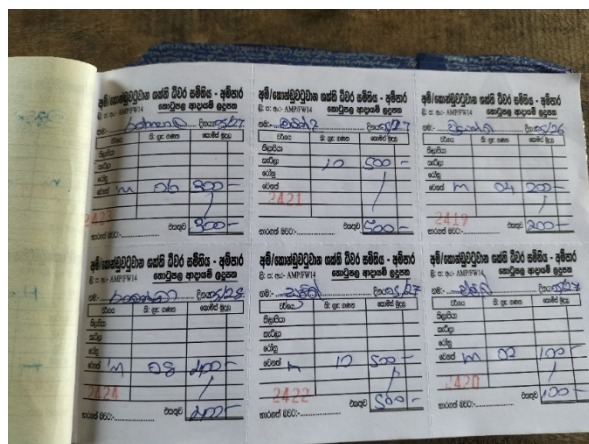 අම්/කොන්ඩුවටුවාන ශක්ති ධීවර සමිතිය - අම්පාර
ලි: ප: අං:- AMP/FW14 තොටුපල ආදායම් ලදුපත
නම:- දිනය 05/27
වර්ගය කි: ග්‍රෑ: ගණන කොමිස් මුදල
තිලාපියා
කැට්ලා
රෝහු
වෙනත් m 06 300-
2423
භාරගත් බවට:- එකතුව 300-
අම්/කොන්ඩුවටුවාන ශක්ති ධීවර සමිතිය - අම්පාර
ලි: ප: අං:- AMP/FW14 තොටුපල ආදායම් ලදුපත
නම:- දිනය 05/27
වර්ගය කි: ග්‍රෑ: ගණන කොමිස් මුදල
තිලාපියා
කැට්ලා 10 500-
රෝහු
වෙනත්
2421
භාරගත් බවට:- එකතුව 500-
අම්/කොන්ඩුවටුවාන ශක්ති ධීවර සමිතිය - අම්පාර
ලි: ප: අං:- AMP/FW14 තොටුපල ආදායම් ලදුපත
නම:- දිනය 05/26
වර්ගය කි: ග්‍රෑ: ගණන කොමිස් මුදල
තිලාපියා
කැට්ලා
රෝහු
වෙනත් m 04 200-
2419
භාරගත් බවට:- එකතුව 200-
අම්/කොන්ඩුවටුවාන ශක්ති ධීවර සමිතිය - අම්පාර
ලි: ප: අං:- AMP/FW14 තොටුපල ආදායම් ලදුපත
නම:- දිනය 05/28
වර්ගය කි: ග්‍රෑ: ගණන කොමිස් මුදල
තිලාපියා
කැට්ලා
රෝහු
වෙනත් m 08 400-
2424
භාරගත් බවට:- එකතුව 400-
අම්/කොන්ඩුවටුවාන ශක්ති ධීවර සමිතිය - අම්පාර
ලි: ප: අං:- AMP/FW14 තොටුපල ආදායම් ලදුපත
නම:- දිනය 05/27
වර්ගය කි: ග්‍රෑ: ගණන කොමිස් මුදල
තිලාපියා
කැට්ලා
රෝහු
වෙනත් 10 500-
2422
භාරගත් බවට:- එකතුව 500-
අම්/කොන්ඩුවටුවාන ශක්ති ධීවර සමිතිය - අම්පාර
ලි: ප: අං:- AMP/FW14 තොටුපල ආදායම් ලදුපත
නම:- දිනය 05/27
වර්ගය කි: ග්‍රෑ: ගණන කොමිස් මුදල
තිලාපියා
කැට්ලා
රෝහු
වෙනත් m 02 100-
2420
භාරගත් බවට:- එකතුව 100-